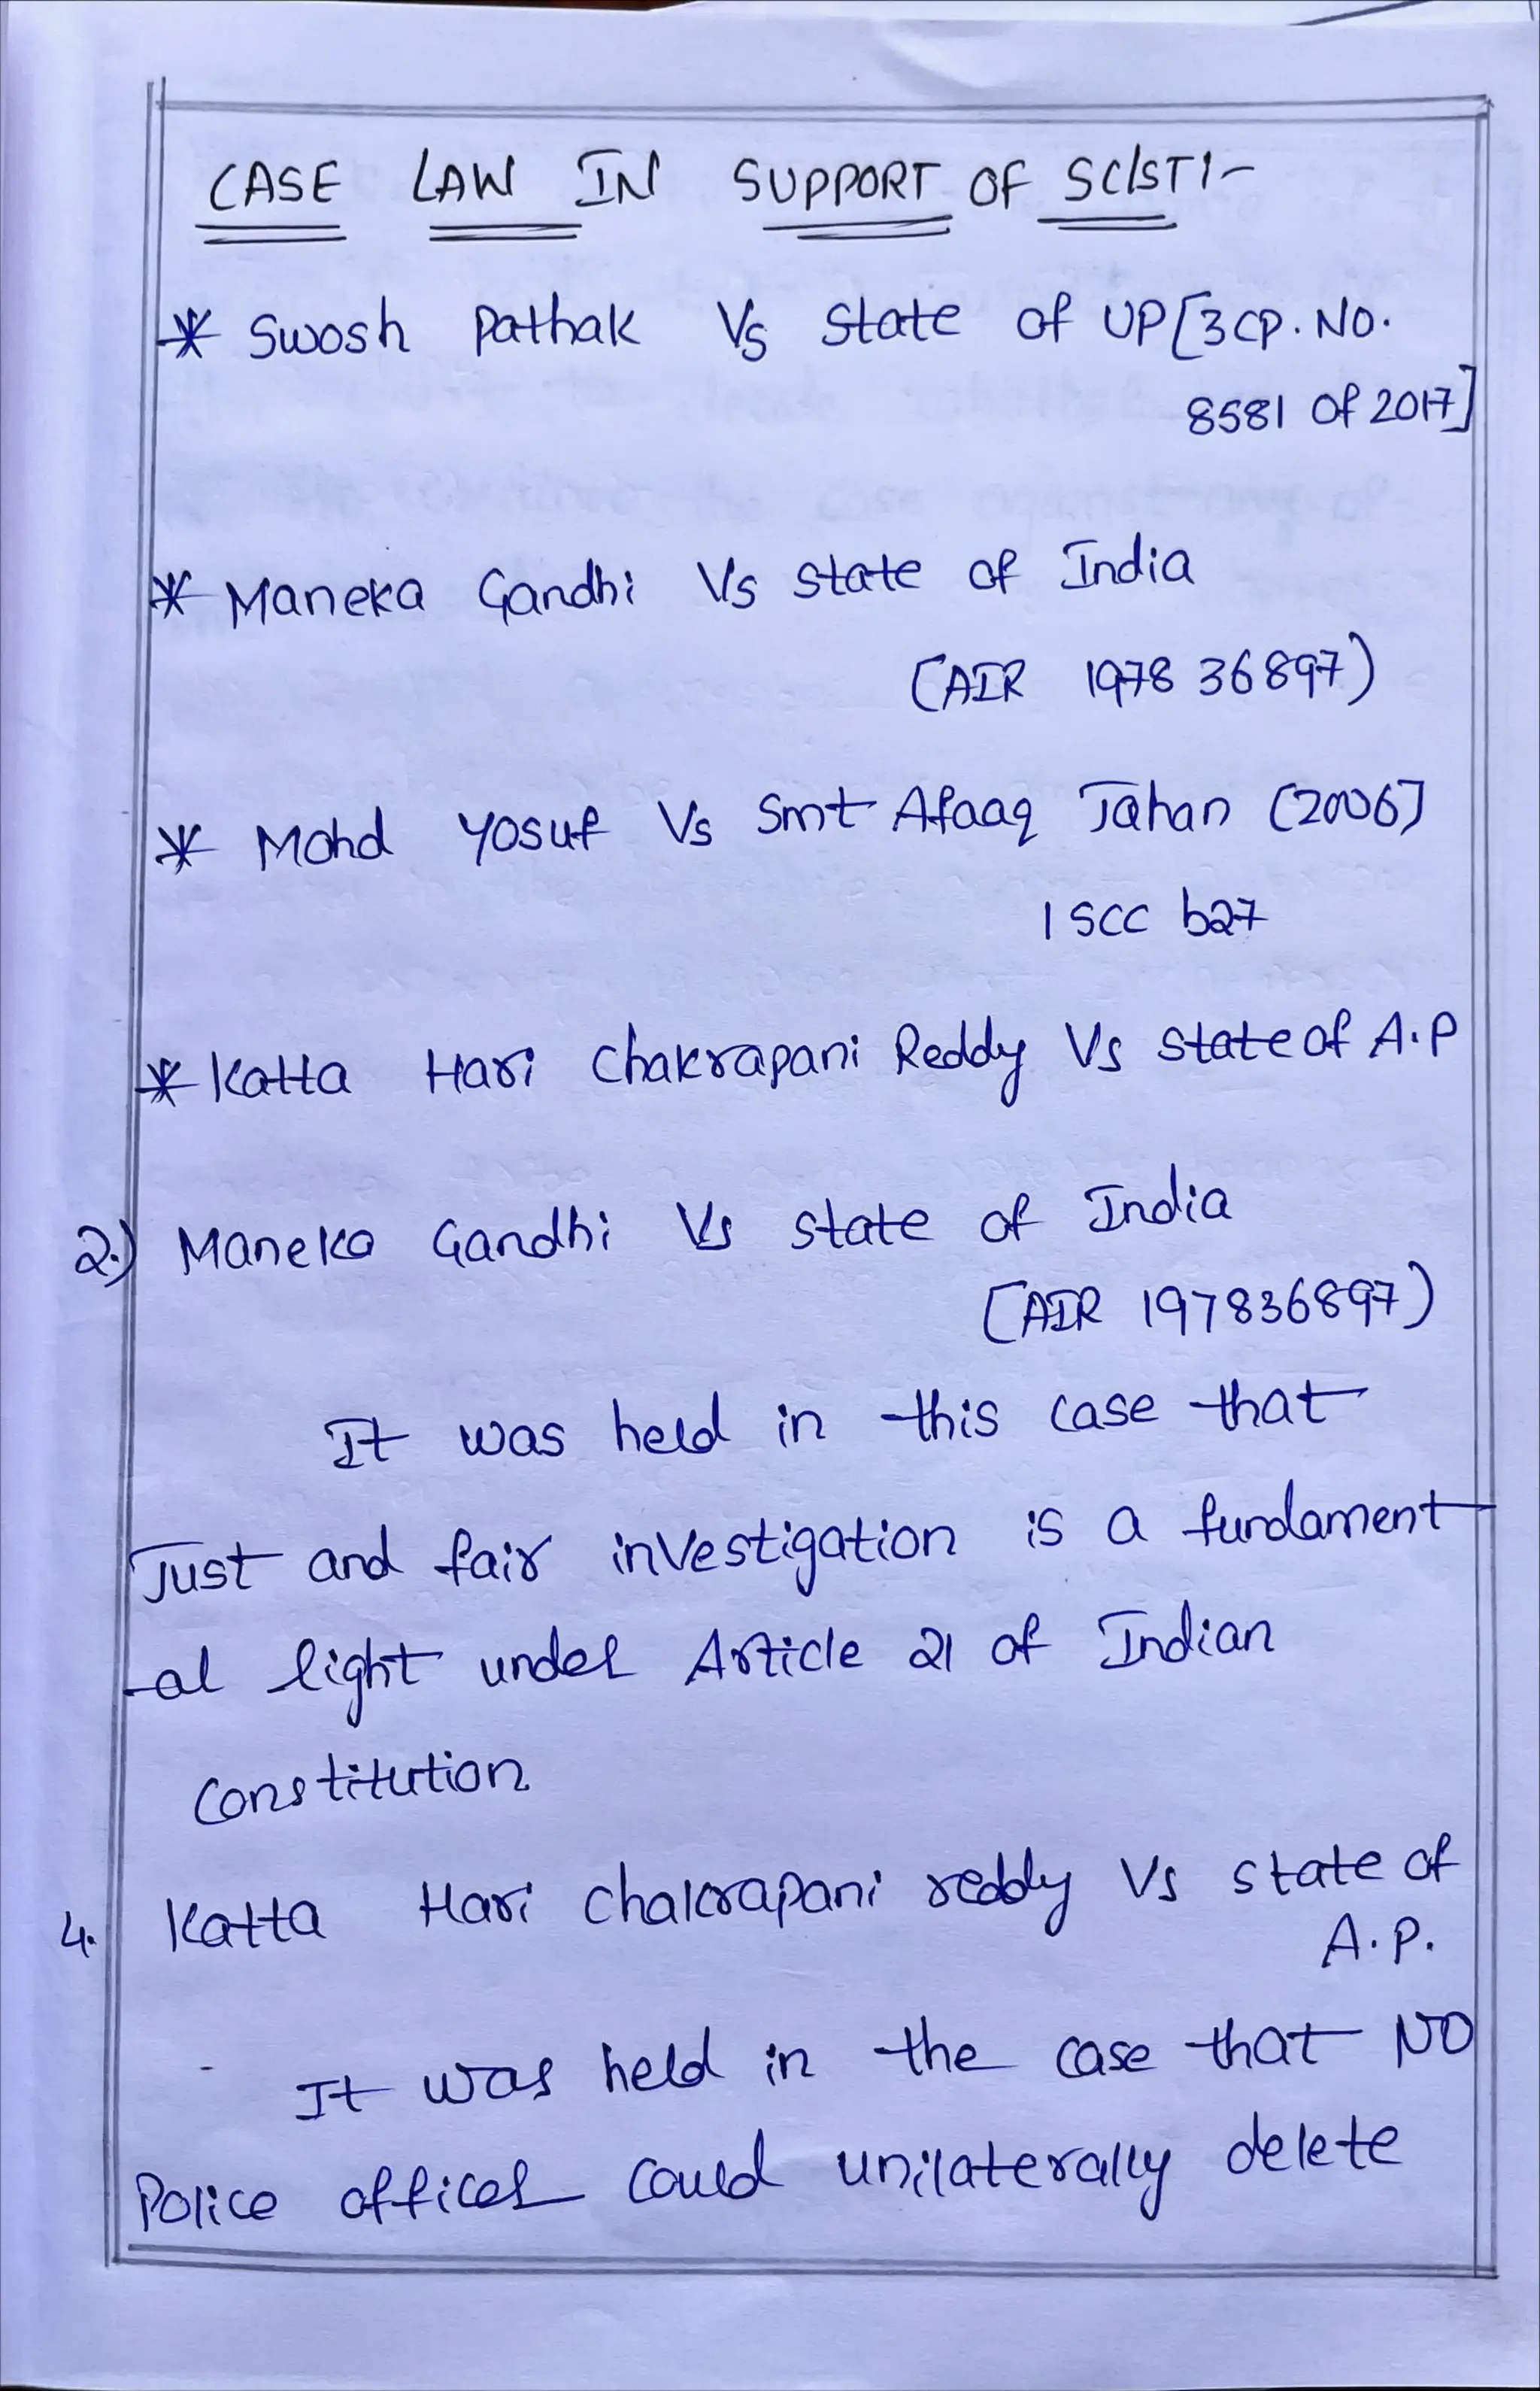 CASE LAW IN SUPPORT OF SC/ST:-
* Swosh Pathak Vs State of UP [3CP. NO.
8581 of 2017]
* Maneka Gandhi Vs State of India
(AIR 1978 36897)
* Mohd Yosuf Vs Smt Afaaq Jahan (2006]
1 SCC b27
* Katta Hari Chakrapani Reddy Vs State of A.P
2.) Maneka Gandhi Vs State of India
(AIR 197836897)
It was held in this case that
Just and fair investigation is a fundament
-al light under Article 21 of Indian
Constitution
4. Katta Hari Chakrapani reddy Vs State of
A.P.
It was held in the case that NO
Police officer could unilaterally delete